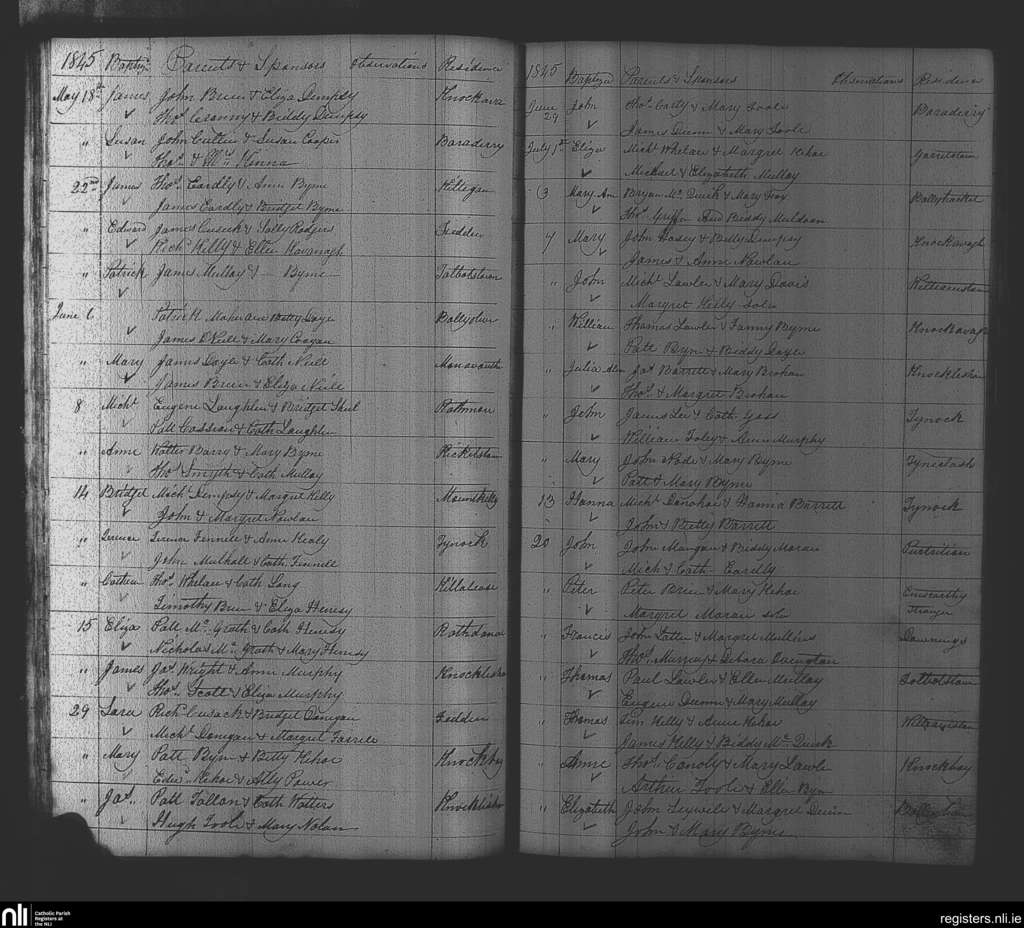 1845 Baptiz Parents & Sponsors Observations Residence
May 18th James John Bruen & Eliza Dempsy Knockava
Thos & Biddy Dempsy
" Susan John Cullen & Susan Cooper Baraderry
Thos & Henna
22nd James Thos Eardly & Ann Byrne Killegan
James Eardly & Bridget Byrne
" Edward James Cusack & Sally Rodgers Feddan
Richd Kelly & Ellen Kavanagh
" Patrick James Mullay & — Byrne Talbotstown
June 6 Patrick Maher Betty Doyle Ballyoliver
James O'Neill & Mary Coogan
" Mary James Doyle & Cath Neill
James Bruen & Eliza Neill
8 Michl Eugene Laughlin & Bridget Rathmore
Patt & Cath Laughlin
" Anne Walter Barry & Mary Byrne Ricketstown
Thos Smyth & Cath Mullay
14 Bridget Michl Dempsy & Margret Kelly
John & Margret Nowlan
" Terence Terence Fennell & Anne Healy Tynock
John Mulhall & Cath Fennell
" Cathrin Thos Whelan & Cath Lang Killalease
Timothy Bruen & Eliza Henesy
15 Eliza Patt Mc Grath & Cath Henesy
Nicholas Mc Grath & Mary Henesy
" James Jas Wright & Anne Murphy Knocklishn
Thos Scott & Eliza Murphy
29 Sara Richd Cusack & Bridget Donegan Feddan
Michl Donegan & Margret Farrell
" Mary Patt Byrn & Betty Kehoe Knockboy
Edwd Kehoe & Ally Power
" Jas Patt Tallon & Cath Watters Knocklishn
Hugh Toole & Mary Nolan
1845 Baptized Parents & Sponsors Observations Residence
June 29 John Thos Carty & Mary Toole Baraderry
James Dunn & Mary Toole
July 1st Eliza Michl Whelan & Margret Kehoe
Michael & Elizabeth Mullay
3 Mary Ann Bryan Mc Quirk & Mary Fox Ballyhacket
Thos Griffin And Biddy Muldoon
7 Mary John Casey & Betty Dempsy Knockavagh
James & Anne Nowlan
" John Michl Lawler & Mary Davis Williamstown
Margret Kelly Solo
" William Thomas Lawler & Fanny Byrne Knockavagh
Patt Byrn & Biddy Doyle
" Julia Jas Barrett & Mary Brohan Knocklishn
Thos & Margret Brohan
" John James Lee & Cath Tynock
William Foley & Anne Murphy
" Mary John Wade & Mary Byrne Tyneclash
Patt & Mary Byrne
13 Hanna Michl Donohoe & Hanna Barrett Tynock
John & Betty Barrett
20 John John Mangan & Biddy Moran
Mich & Cath Eardly
" Peter Peter Bruen & Mary Kehoe Eniscorthy Stranger
Margret Moran solo
" Francis John Latten & Margret Mullins Downings
Thos Murray & Debora Overington
" Thomas Paul Lawler & Ellen Mullay Talbotstown
Eugene Dunne & Mary Mullay
" Thomas Tim Kelly & Anne Kehoe
James Kelly & Biddy Mc Quirk
" Anne Thos Conoly & Mary Lawler Knockboy
Arthur Toole & Ellen Byrn
" Elizabeth John & Margret Dunn
John & Mary Byrne
nli Catholic Parish Registers at the NLI
registers.nli.ie